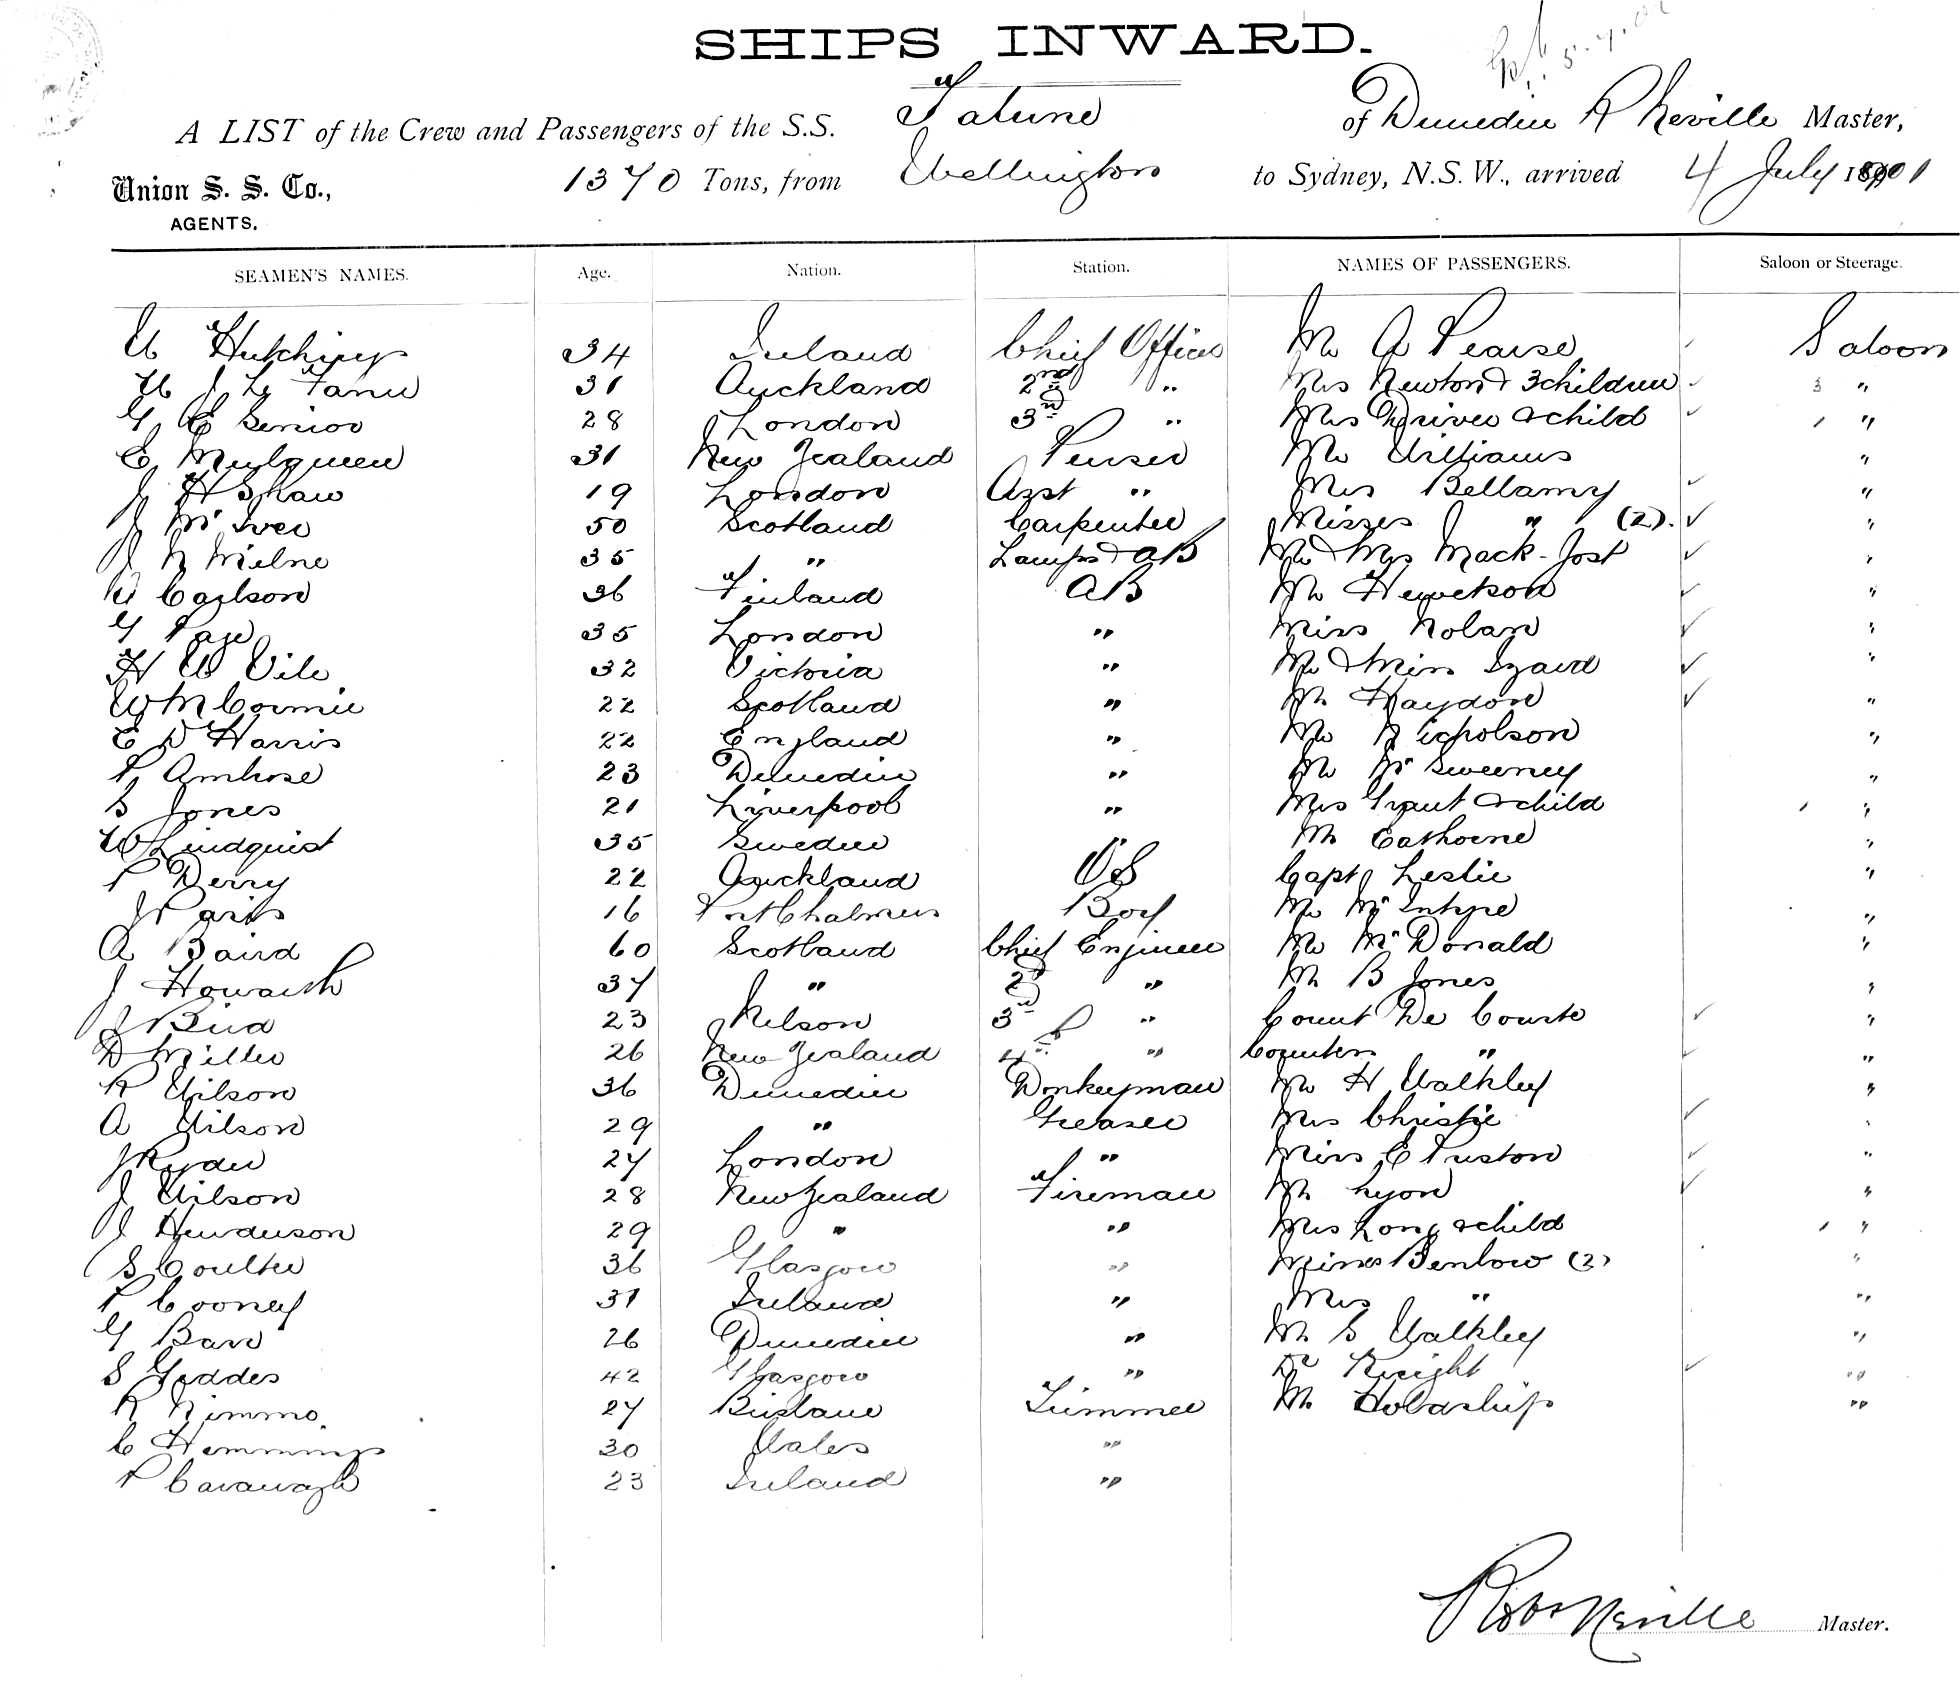 SHIPS INWARD.
A LIST of the Crew and Passengers of the S.S. Talune of Dunedin R Neville Master,
Union S. S. Co., 1370 Tons, from Wellington to Sydney, N.S.W., arrived 4 July 1901
AGENTS.
SEAMEN'S NAMES. Age. Nation. Station. NAMES OF PASSENGERS. Saloon or Steerage.
W Hutchings 34 Ireland Chief Officer Mr A Pearse Saloon
W J Le Fanu 31 Auckland 2nd " Mrs Newton & 3 children 3 "
G E Senior 28 London 3rd " Mrs Driver & child 1 "
E Mulqueen 31 New Zealand Purser Mr Williams "
J H Shaw 19 London Asst " Mrs Bellamy "
J McIver 50 Scotland Carpenter Misses " (2). "
J N Milne 35 " Lamps & AB Mr & Mrs Mack-Jost "
Carlson 36 Finland AB Mr Hewetson "
G Page 35 London " Miss Nolan "
H W Vile 32 Victoria " Mr & Miss Izard "
W McCormie 22 Scotland " Mr Haydon "
E D Harris 22 England " Mr Nicholson "
P Ambrose 23 Dunedin " Mr McSweeney "
S Jones 21 Liverpool " Mrs Grant & child 1 "
W Lindquist 35 Sweden " Mr Cathorne "
P Derry 22 Auckland OS Capt Leslie "
J Paris 16 Port Chalmers Boy Mr McIntyre "
A Baird 60 Scotland Chief Engineer Mr McDonald "
J Howarth 37 " 2d " Mr B Jones "
J Bird 23 Nelson 3rd " Count De Courte "
D Miller 26 New Zealand 4th " Countess " "
R Wilson 36 Dunedin Donkeyman Mr H Walkley "
A Wilson 29 " Greaser Mrs Christie "
J Ryder 27 London " Miss E Preston "
J Wilson 28 New Zealand Fireman Mr Lyon "
J Henderson 29 " " Mrs Long & child 1 "
S Coulter 36 Glasgow " Misses Benlow (2) "
P Cooney 31 Ireland " Mrs " "
G Barr 26 Dunedin " Mr S Walkley "
S Geddes 42 Glasgow " Dr Knight "
R Nimmo 27 Brisbane Trimmer Mr Holdship "
C Hemmings 30 Wales "
P Cavanagh 23 Ireland "
Robt Neville Master.